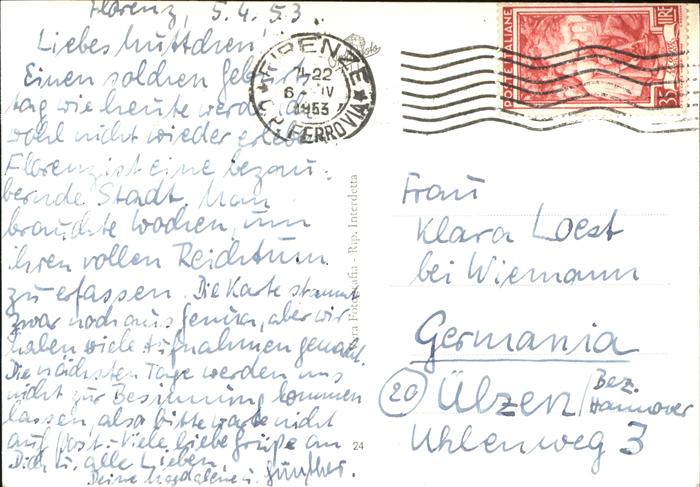 Florenz, 5.4.53.
Liebes Muttchen,
Einen solchen Geburts-
tag wie heute werde ich
wohl nicht wieder erleben.
Florenz ist eine bezau-
bernde Stadt. Man
brauchte Wochen, um
ihren vollen Reichtum
zu erfassen. Die Karte stammt
zwar noch aus Genua, aber wir
haben viele Aufnahmen gemacht.
Die nächsten Tage werden uns
nicht zur Besinnung kommen
lassen, also bitte warte nicht
auf Post. Viele liebe Grüße an
Dich u. alle Lieben.
Deine Magdalene u. Günther.
FIRENZE
22
6 - IV
1953
FERROVIA
POSTE ITALIANE
LIRE
35
Fotografia - Rip. Interdetta
24
Frau
Klara Loest
bei Wiemann
Germania
20 Ülzen/Bez.
Hannover
Uhlenweg 3